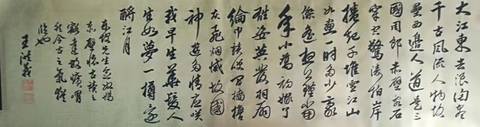 大江東去浪淘盡
千古風流人物故
壘西邊人道是三
國周郎赤壁亂石
穿空驚濤拍岸
捲起千堆雪江山
如畫一時多少豪
傑遙想公瑾當
年小喬初嫁了
雄姿英發羽扇
綸巾談笑間檣櫓
灰飛煙滅故國
神遊多情應笑
我早生華髮人
生如夢一樽還
酹江月
東坡先生念奴嬌